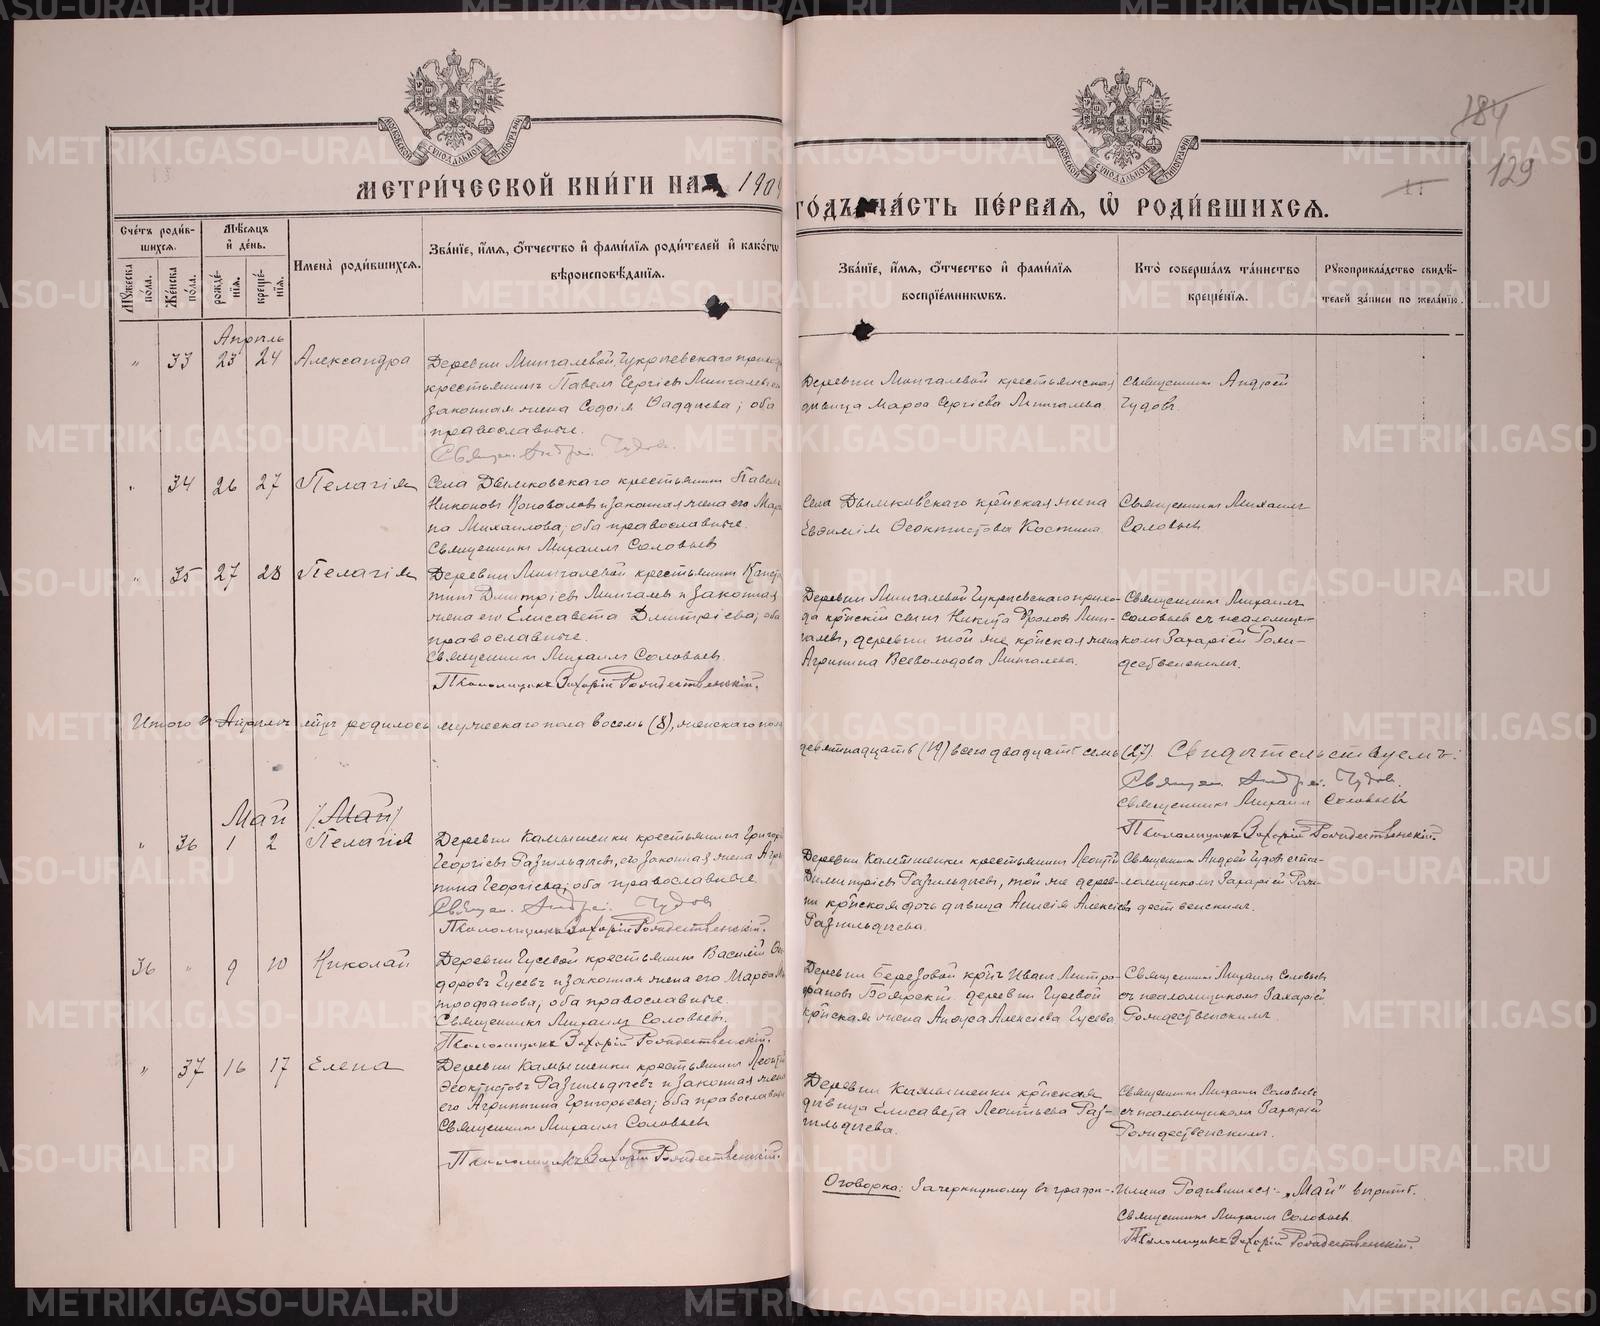 184
129
МЕТРИ́ЧЕСКОЙ КНИ́ГИ НА 1909
ГО́ДЪ ЧА́СТЬ ПЕ́РВАЯ, Ѽ РОДИ́ВШИХСЯ.
МОСКОВСКОЙ СѴНОДАЛЬНОЙ ТИПОГРАФІИ
МОСКОВСКОЙ СѴНОДАЛЬНОЙ ТИПОГРАФІИ
Сче́тъ роди́в-
шихся.
Мѣ́сяцъ
и́ де́нь.
Мꙋ́жеска по́ла.
Же́нска по́ла.
рожде́-
нїѧ.
креще́-
нїѧ.
Имена̀ роди́вшихся.
Зва́нїе, и́мѧ, ѻ́тчество и́ фами́лїѧ роди́телей и́ како́гѡ
вѣроисповѣ́данїѧ.
Зва́нїе, и́мѧ, ѻ́тчество и́ фами́лїѧ
воспрїе́мникѡвъ.
Кто̀ соверша́лъ та́инство
креще́нїѧ.
Рꙋкоприкла́дство свидѣ́-
телей за́писи по жела́нїю.
Апрѣль
„ 33 23 24 Александра
Деревни Мингалевой, Чукрѣевскаго прихода
крестьянинъ Павелъ Сергіевъ Мингалевъ и
законная жена Софія Фаддѣева; оба
православные.
Священ. Андрей Чудов.
Деревни Мингалевой крестьянская
дѣвица Марѳа Сергіева Мингалева.
Священникъ Андрей
Чудовъ.
„ 34 26 27 Пелагія
Села Дымковскаго крестьянинъ Павелъ
Никоновъ Коновалов и законная жена его Мар-
на Михаилова; оба православные.
Священникъ Михаилъ Соловьевъ
Села Дымковскаго кр̃нская жена
Евфимія Ѳеоктистова Костина.
Священникъ Михаилъ
Соловьевъ
„ 35 27 28 Пелагія
Деревни Мингалевой крестьянинъ Конста-
тинъ Дмитріевъ Мингалевъ и законная
жена его Елисавета Дмитріева; оба
православные.
Священникъ Михаилъ Соловьевъ.
Псаломщикъ Захарій Рождественскій.
Деревни Мингалевой Чукрѣевскаго прихо-
да кр̃нскій сынъ Никита Фроловъ Мин-
галевъ, деревни той же кр̃нская жена
Агрипина Всеволодова Мингалева.
Священникъ Михаилъ
Соловьевъ съ псаломщи-
комъ Захаріей Рож-
дественскимъ.
Итого въ Апрѣлѣ мц̃ѣ родилось мужескаго пола восемь (8), женскаго пола
девятнадцать (19) всего двадцать семь (27) Свидѣтельствуемъ:
Священ. Андрей Чудов.
Священникъ Михаилъ Соловьевъ
Псаломщикъ Захарій Рождественскій.
Май (Май)
„ 36 1 2 Пелагія
Деревни Камышенки крестьянинъ Григорій
Георгіевъ Разгильдѣевъ, его законная жена Агрип-
пина Георгіева; оба православные
Священ. Андрей Чудов
Псаломщикъ Захарій Рождественскій.
Деревни Камышенки крестьянинъ Леонтій
Димитріевъ Разгильдѣевъ, той же дерев-
ни кр̃нская дочь дѣвица Анисія Алексіева
Разгильдѣева.
Священникъ Андрей Чудов съ пса-
ломщикомъ Захаріей Рож-
дественскимъ.
36 „ 9 10 Николай
Деревни Гусевой крестьянинъ Василій Ѳе-
доровъ Гусевъ и законная жена его Марѳа Ми-
трофанова; оба православные.
Священникъ Михаилъ Соловьевъ.
Псаломщикъ Захарій Рождественскій.
Деревни Березовой кр̃нъ Иванъ Митро-
фановъ Боярскій, деревни Гусевой
кр̃нская жена Анфуса Алексіева Гусева
Священникъ Михаилъ Соловьевъ
съ псаломщикомъ Захаріей
Рождественскимъ.
„ 37 16 17 Елена
Деревни Камышенки крестьянинъ Леонтій
Ѳеоктистовъ Разгильдѣевъ и законная жена
его Агриппина Григорьева; оба православные
Священникъ Михаилъ Соловьевъ
Псаломщикъ Захарій Рождественскій.
Деревни Камышенки кр̃нская
дѣвица Елисавета Леонтьева Раз-
гильдѣева.
Священникъ Михаилъ Соловьевъ
съ псаломщикомъ Захаріей
Рождественскимъ.
Оговорка: Зачеркнутому въ графѣ - Имена Родившихся: - „Май“ вѣрить.
Священникъ Михаилъ Соловьевъ.
Псаломщикъ Захарій Рождественскій.
METRIKI.GASO-URAL.RU